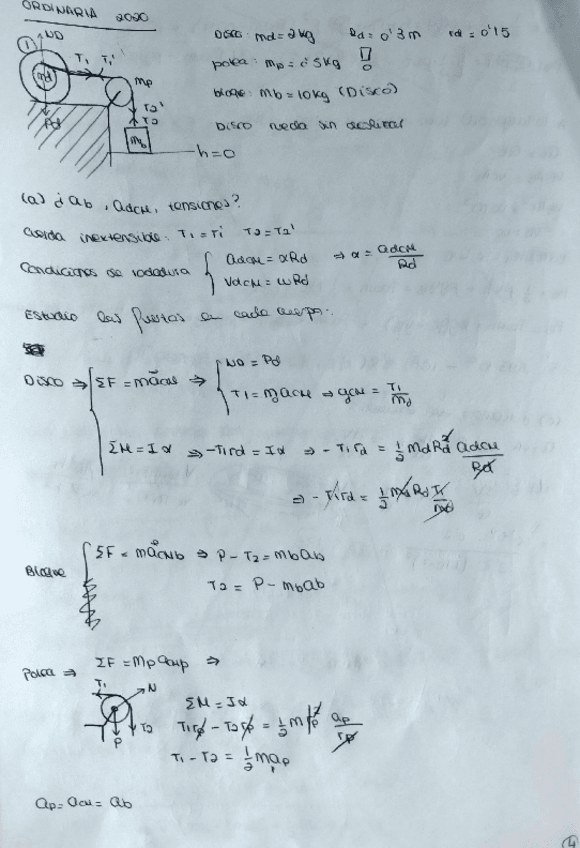 ORDINARIA 2020
Disco: md = 2kg Rd = 0'3 m rd = 0'15
polea: mp = 0'5kg
bloque: mb = 10kg (Disco)
Disco rueda sin deslizar
1 ND
T1 T1'
rd
mp
T2'
T2
Pd
mb
h=0
(a) ¿ab, adcm, tensiones?
Cuerda inextensible: T1 = T1' T2 = T2'
Condiciones de rodadura { adcm = αRd ⇒ α = adcm/Rd
vdcm = ωRd
Estudio las fuerzas en cada cuerpo:
Disco ⇒ ΣF = macm ⇒ { ND = Pd
T1 = md acm ⇒ acm = T1/md
ΣM = Iα ⇒ -T1rd = Iα ⇒ -T1rd = 1/2 mdRd² adcm/Rd
⇒ -T1rd = 1/2 md Rd T1/md
Bloque { ΣF = macmb ⇒ P - T2 = mbab
T2 = P - mbab
Polea ⇒ ΣF = mp acmp ⇒
T1 N
T2
P
ΣM = Iα
T1rp - T2rp = 1/2 m rp² ap/rp
T1 - T2 = 1/2 map
ap = acm = ab
4